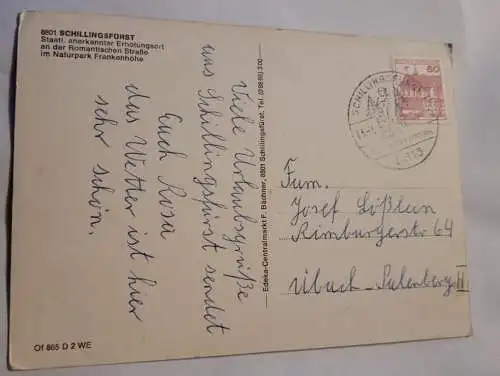 8801 SCHILLINGSFÜRST
Staatl. anerkannter Erholungsort
an der Romantischen Straße
im Naturpark Frankenhöhe
Viele Urlaubsgrüße
aus Schillingsfürst sendet
Euch Rosa
das Wetter ist hier
sehr schön.
Of 865 D 2 WE
Edeka-Centralmarkt F. Bächner, 8801 Schillingsfürst, Tel. (09868) 300
60
SCHILLINGSFÜRST
8813
Fam.
Josef Lößlein
Rimburgerstr 64
Übach-Palenberg II